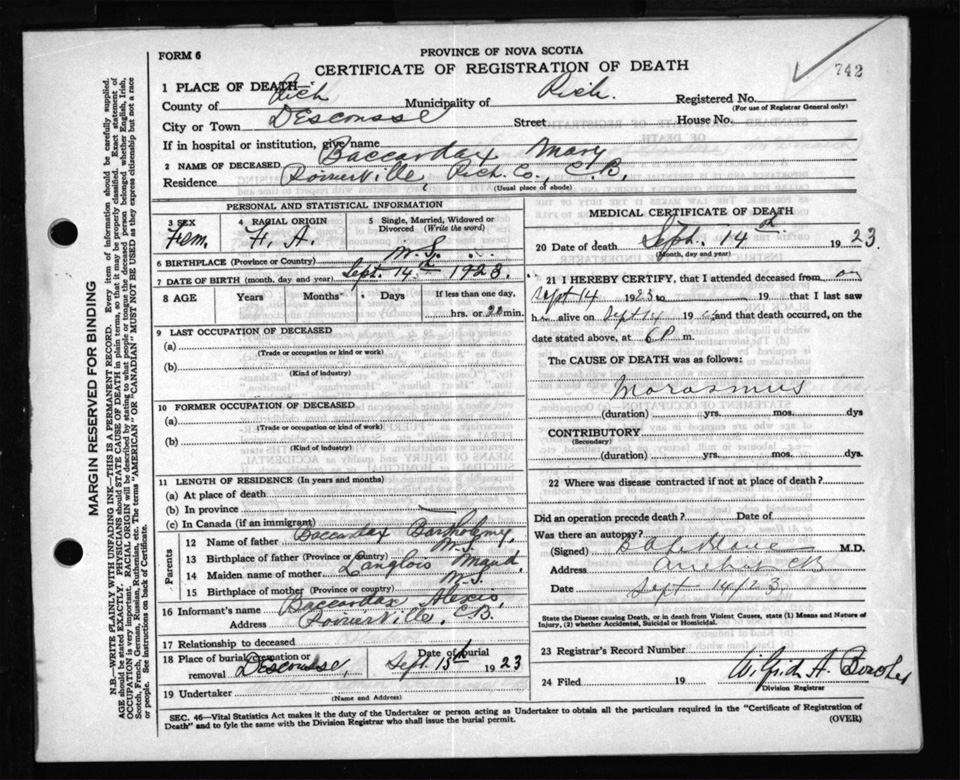 FORM 6
PROVINCE OF NOVA SCOTIA
CERTIFICATE OF REGISTRATION OF DEATH
742
1 PLACE OF DEATH—
County of Rich Municipality of Rich. Registered No.
(For use of Registrar General only)
City or Town Descousse Street House No.
If in hospital or institution, give name
2 NAME OF DECEASED Baccardax Mary
Residence Poirierville, Rich. Co., C.B.
(Usual place of abode)
PERSONAL AND STATISTICAL INFORMATION
3 SEX Fem.
4 RACIAL ORIGIN F. A.
5 Single, Married, Widowed or Divorced (Write the word)
6 BIRTHPLACE (Province or Country) N.S.
7 DATE OF BIRTH (month, day and year) Sept. 14th 1923.
8 AGE Years Months Days If less than one day, hrs. or 22 min.
9 LAST OCCUPATION OF DECEASED
(a)
(Trade or occupation or kind or work)
(b)
(Kind of industry)
10 FORMER OCCUPATION OF DECEASED
(a)
(Trade or occupation or kind of work)
(b)
(Kind of industry)
11 LENGTH OF RESIDENCE (In years and months)
(a) At place of death
(b) In province
(c) In Canada (if an immigrant)
Parents
12 Name of father Baccardax Bartholomy.
13 Birthplace of father (Province or Country) N.S.
14 Maiden name of mother Langlois Maud.
15 Birthplace of mother (Province or Country) N.S.
16 Informant's name Baccardax Alexis,
Address Poirierville, C.B.
17 Relationship to deceased
18 Place of burial, cremation or removal Descousse, Date of burial Sept. 15th 1923
19 Undertaker
(Name and Address)
MEDICAL CERTIFICATE OF DEATH
20 Date of death Sept. 14th 1923.
(Month, day and year)
21 I HEREBY CERTIFY, that I attended deceased from on
Sept 14 1923 to 19 that I last saw
h alive on Sept 14 19 and that death occurred, on the
date stated above, at 6 P m.
The CAUSE OF DEATH was as follows:
Marasmus
(duration) yrs. mos. dys
CONTRIBUTORY
(Secondary)
(duration) yrs. mos. dys.
22 Where was disease contracted if not at place of death?
Did an operation precede death? Date of
Was there an autopsy?
(Signed) M.D.
Address Arichat CB
Date Sept 14/23
State the Disease causing Death, or in death from Violent Causes, state (1) Means and Nature of Injury, (2) whether Accidental, Suicidal or Homicidal.
23 Registrar's Record Number
24 Filed 19 Wilfrid A. Boucher
Division Registrar
SEC. 46—Vital Statistics Act makes it the duty of the Undertaker or person acting as Undertaker to obtain all the particulars required in the "Certificate of Registration of
Death" and to fyle the same with the Division Registrar who shall issue the burial permit.
(OVER)
MARGIN RESERVED FOR BINDING
N.B.—WRITE PLAINLY WITH UNFADING INK—THIS IS A PERMANENT RECORD. Every item of information should be carefully supplied.
AGE should be stated EXACTLY. PHYSICIANS should STATE CAUSE OF DEATH in plain terms, so that it may be properly classified. Exact statement of
OCCUPATION is very important. RACIAL ORIGIN will be described by stating to what people or tongue the deceased person belonged whether English, Irish,
Scotch, French, German, Russian, Ruthenian, etc. The terms "AMERICAN" OR "CANADIAN" MUST NOT BE USED as they express citizenship but not a race
or people. See instructions on back of Certificate.